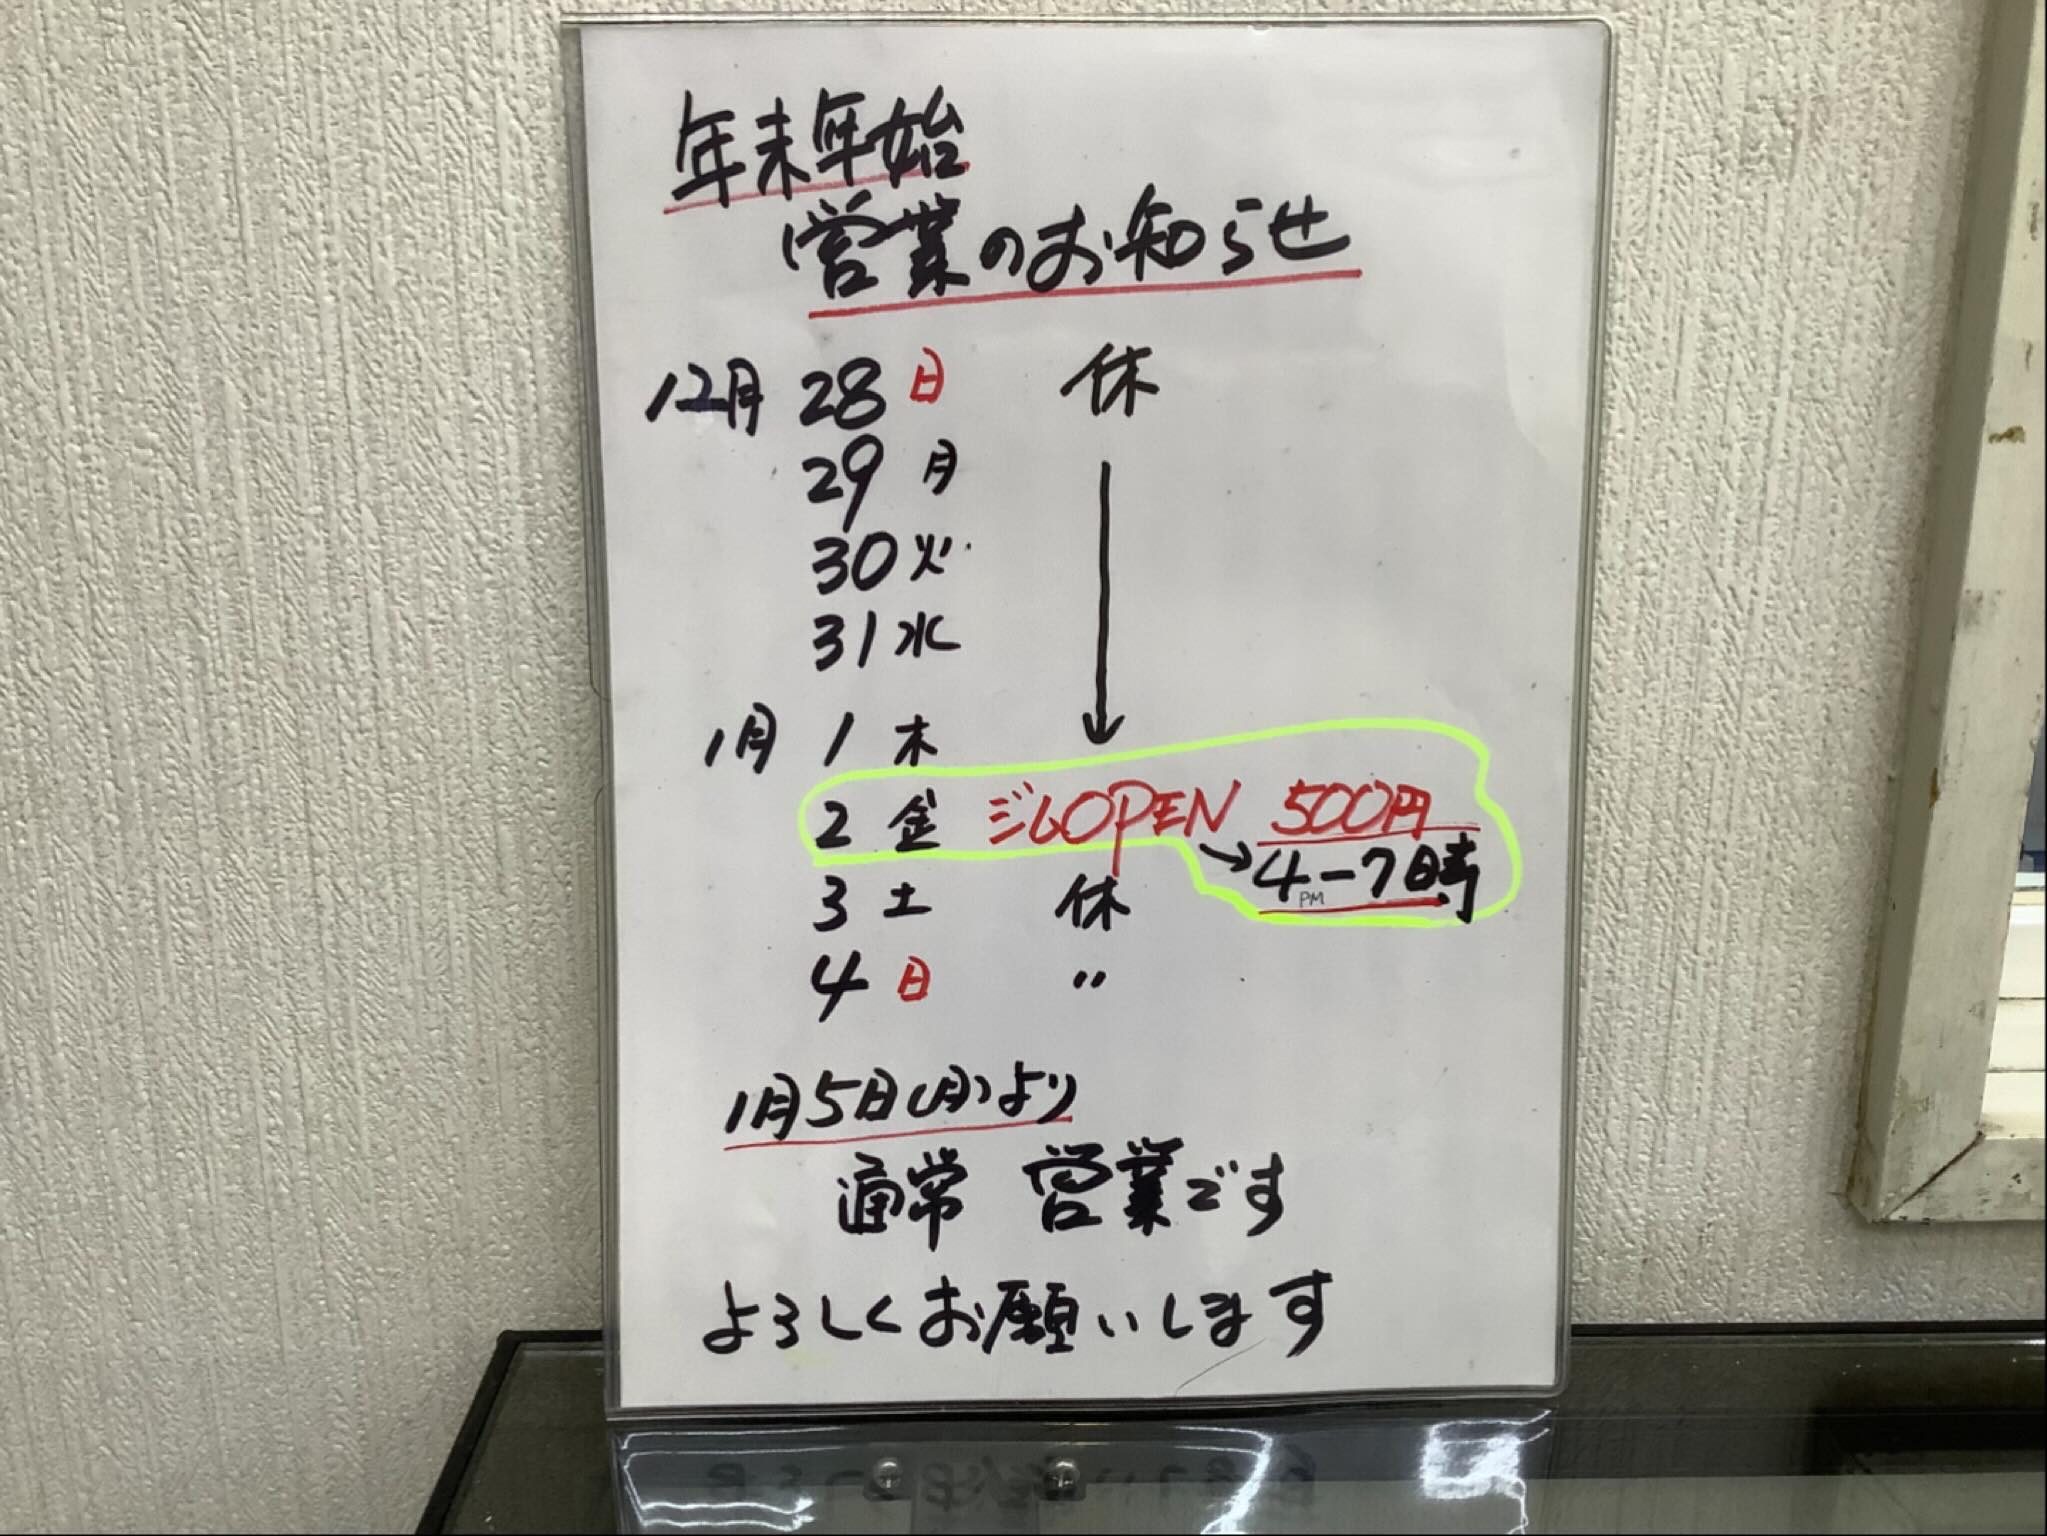 年末年始
営業のお知らせ
12月 28 日 休
29 月
30 火
31 水
1月 1 木
2 金 ジムOPEN 500円
→ 4-7時
PM
3 土 休
4 日 〃
1月5日(月)より
通常 営業です
よろしくお願いします